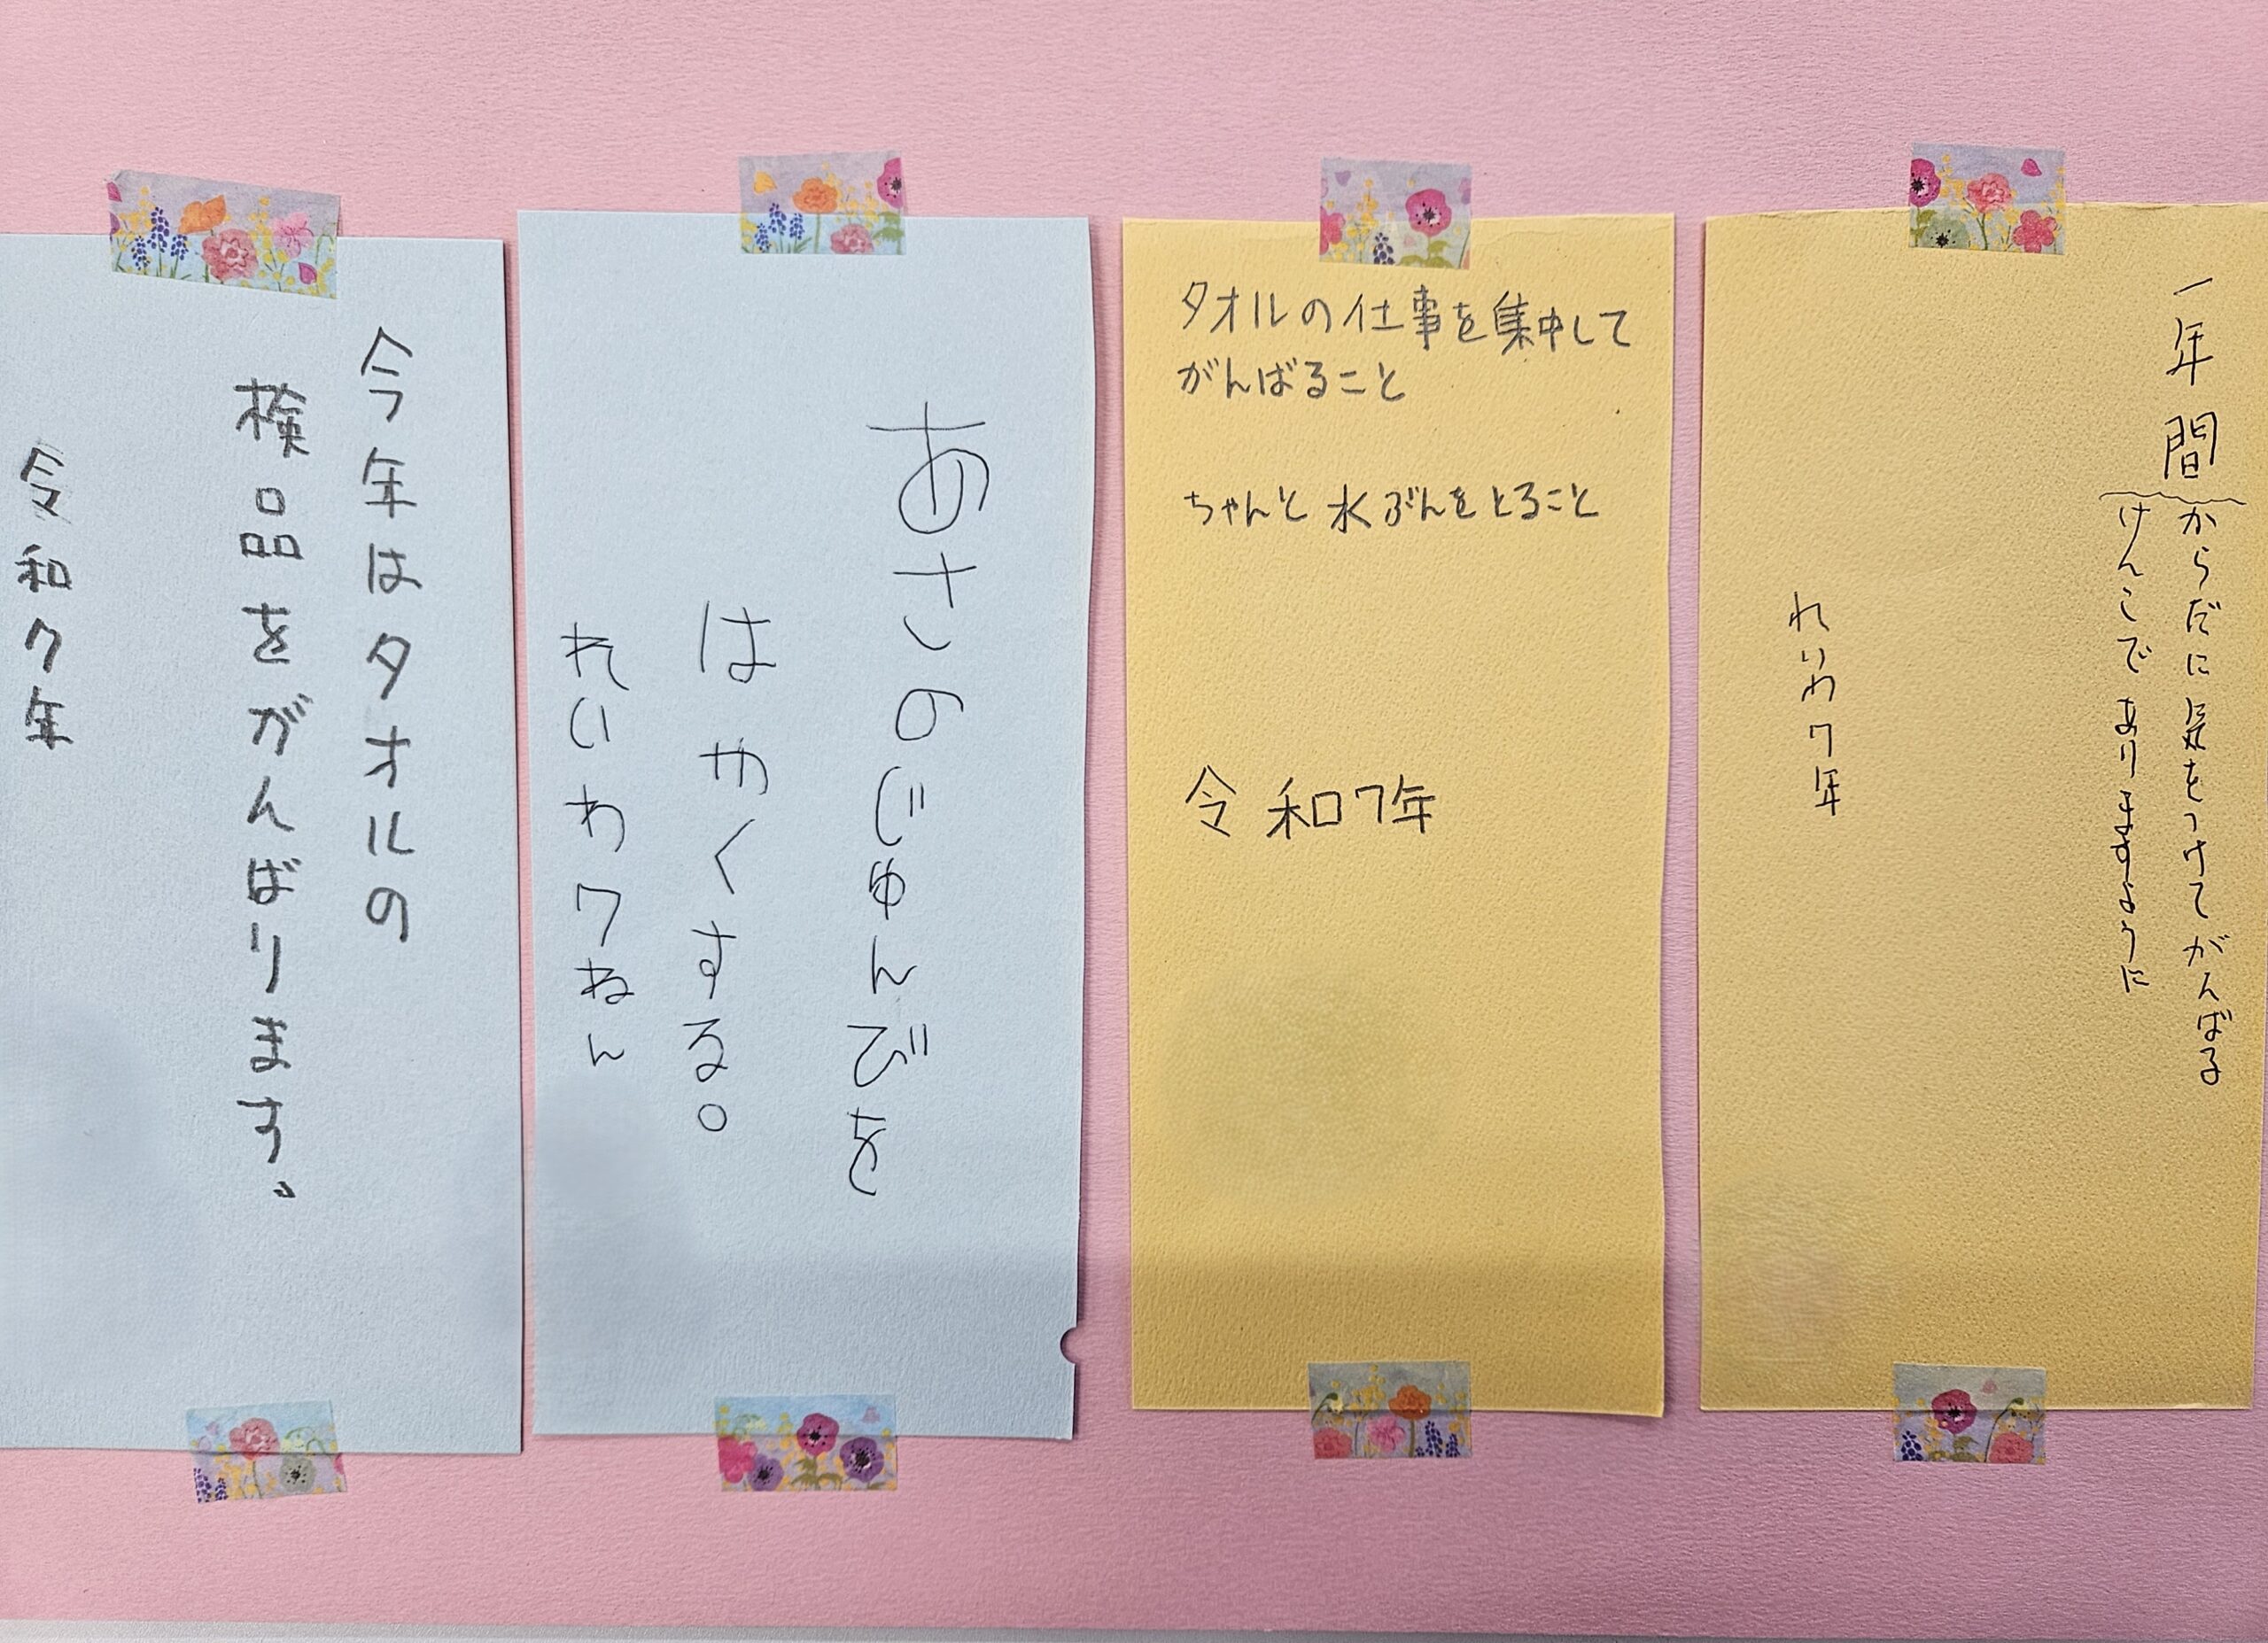 一年間
からだに気をつけてがんばる
けんこでありますように
れいわ7年
タオルの仕事を集中して
がんばること
ちゃんと水ぶんをとること
令和7年
あさのじゅんびを
はやくする。
れいわ7ねん
今年はタオルの
検品をがんばります。
令和7年